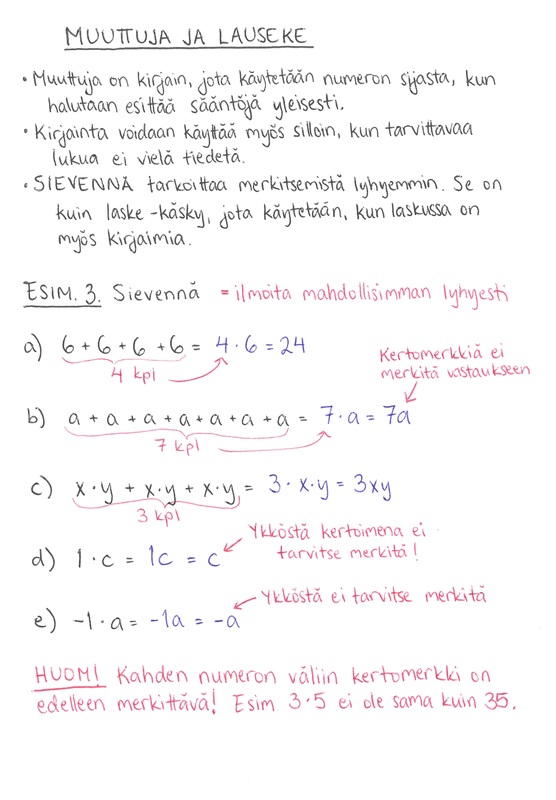 MUUTTUJA JA LAUSEKE
• Muuttuja on kirjain, jota käytetään numeron sijasta, kun
halutaan esittää sääntöjä yleisesti.
• Kirjainta voidaan käyttää myös silloin, kun tarvittavaa
lukua ei vielä tiedetä.
• SIEVENNÄ tarkoittaa merkitsemistä lyhyemmin. Se on
kuin laske -käsky, jota käytetään, kun laskussa on
myös kirjaimia.
ESIM. 3. Sievennä = ilmoita mahdollisimman lyhyesti
a) 6 + 6 + 6 + 6 = 4 · 6 = 24
4 kpl
Kertomerkkiä ei
merkitä vastaukseen
b) a + a + a + a + a + a + a = 7 · a = 7a
7 kpl
c) x · y + x · y + x · y = 3 · x · y = 3xy
3 kpl
Ykköstä kertoimena ei
tarvitse merkitä!
d) 1 · c = 1c = c
Ykköstä ei tarvitse merkitä
e) -1 · a = -1a = -a
HUOM! Kahden numeron väliin kertomerkki on
edelleen merkittävä! Esim 3 · 5 ei ole sama kuin 35.